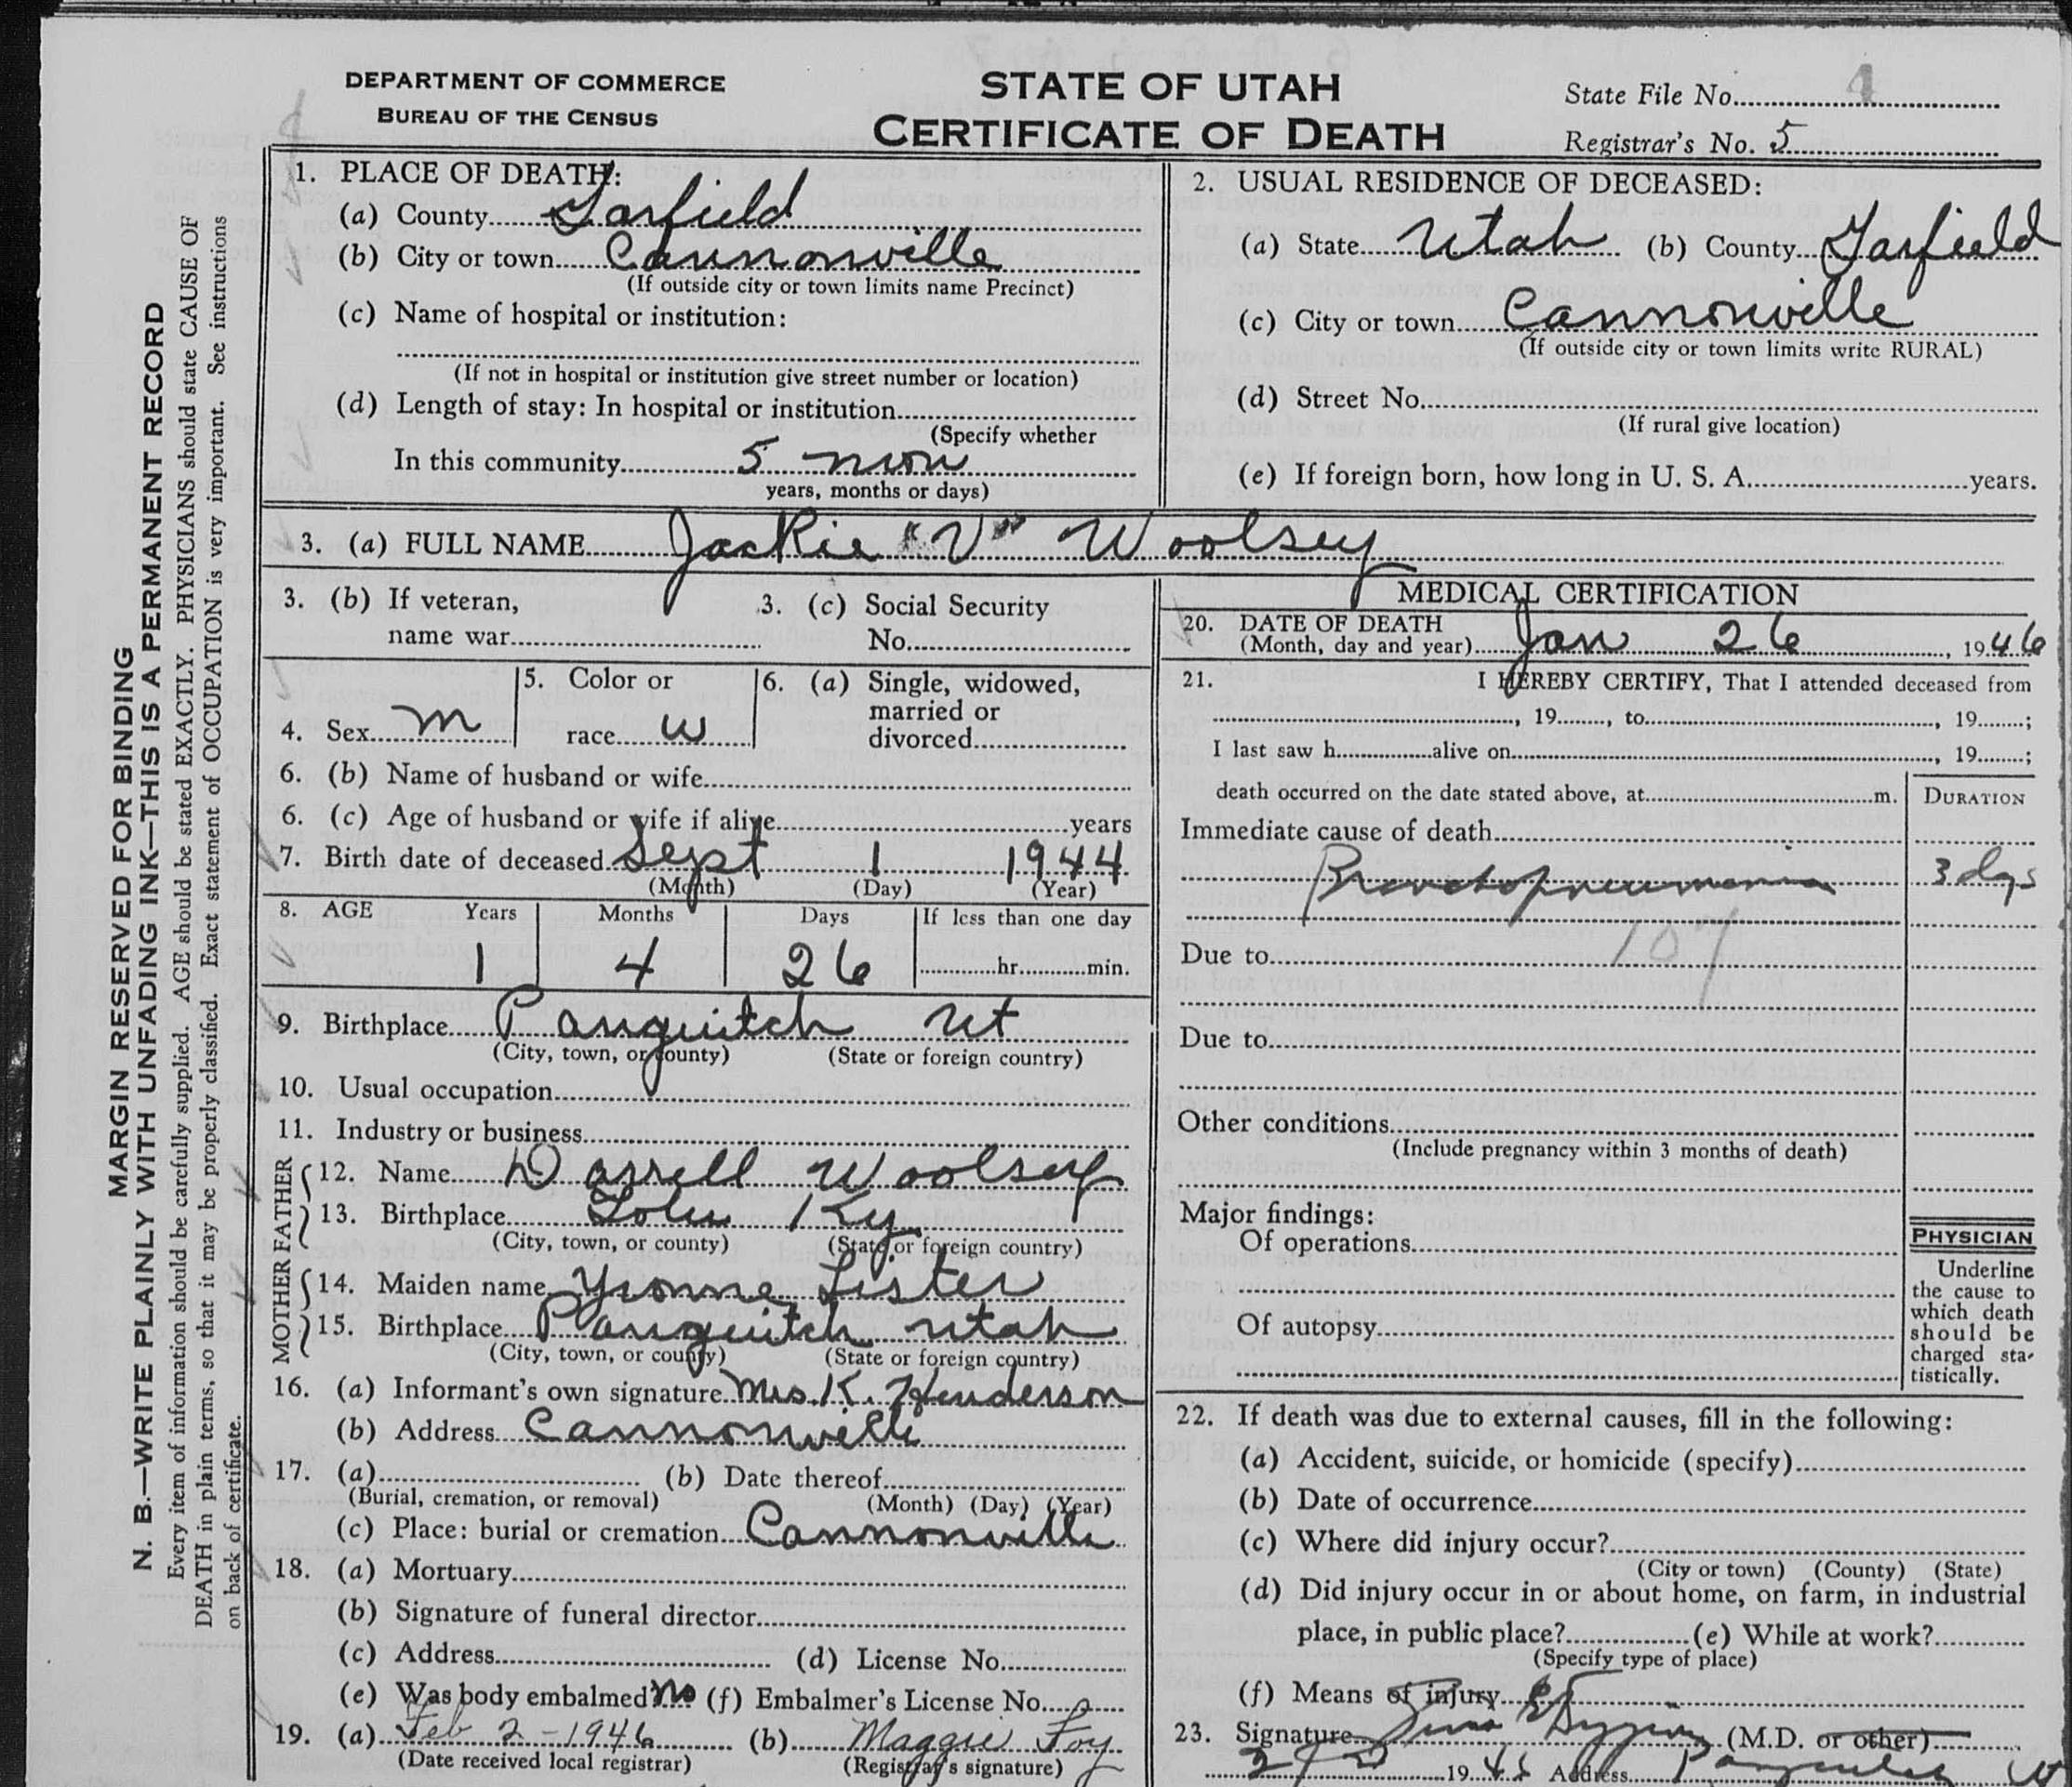 DEPARTMENT OF COMMERCE
BUREAU OF THE CENSUS
STATE OF UTAH
CERTIFICATE OF DEATH
State File No. 4
Registrar's No. 5
MARGIN RESERVED FOR BINDING
N. B.—WRITE PLAINLY WITH UNFADING INK—THIS IS A PERMANENT RECORD
Every item of information should be carefully supplied. AGE should be stated EXACTLY. PHYSICIANS should state CAUSE OF
DEATH in plain terms, so that it may be properly classified. Exact statement of OCCUPATION is very important. See instructions
on back of certificate.
1. PLACE OF DEATH:
(a) County Garfield
(b) City or town Cannonville
(If outside city or town limits name Precinct)
(c) Name of hospital or institution:
(If not in hospital or institution give street number or location)
(d) Length of stay: In hospital or institution
(Specify whether
In this community 5 mon
years, months or days)
2. USUAL RESIDENCE OF DECEASED:
(a) State Utah (b) County Garfield
(c) City or town Cannonville
(If outside city or town limits write RURAL)
(d) Street No.
(If rural give location)
(e) If foreign born, how long in U. S. A. years.
3. (a) FULL NAME Jackie "V" Woolsey
3. (b) If veteran,
name war
3. (c) Social Security
No.
4. Sex m
5. Color or
race w
6. (a) Single, widowed,
married or
divorced
6. (b) Name of husband or wife
6. (c) Age of husband or wife if alive years
7. Birth date of deceased Sept 1 1944
(Month) (Day) (Year)
8. AGE Years Months Days If less than one day
1 4 26 hr. min.
9. Birthplace Panguitch Ut
(City, town, or county) (State or foreign country)
10. Usual occupation
11. Industry or business
FATHER
12. Name Darrell Woolsey
13. Birthplace Ky
(City, town, or county) (State or foreign country)
MOTHER
14. Maiden name Yvonne Lister
15. Birthplace Panguitch Utah
(City, town, or county) (State or foreign country)
16. (a) Informant's own signature Mrs. K. Henderson
(b) Address Cannonville
17. (a) (b) Date thereof
(Burial, cremation, or removal) (Month) (Day) (Year)
(c) Place: burial or cremation Cannonville
18. (a) Mortuary
(b) Signature of funeral director
(c) Address (d) License No.
(e) Was body embalmed no (f) Embalmer's License No.
19. (a) Feb 2-1946 (b) Maggie Foy
(Date received local registrar) (Registrar's signature)
MEDICAL CERTIFICATION
20. DATE OF DEATH
(Month, day and year) Jan 26, 1946
21. I HEREBY CERTIFY, That I attended deceased from
, 19 , to , 19 ;
I last saw h alive on , 19 ;
death occurred on the date stated above, at m.
DURATION
Immediate cause of death
Bronchopneumonia 3 dys
107
Due to
Due to
Other conditions
(Include pregnancy within 3 months of death)
Major findings:
Of operations
Of autopsy
PHYSICIAN
Underline
the cause to
which death
should be
charged sta-
tistically.
22. If death was due to external causes, fill in the following:
(a) Accident, suicide, or homicide (specify)
(b) Date of occurrence
(c) Where did injury occur?
(City or town) (County) (State)
(d) Did injury occur in or about home, on farm, in industrial
place, in public place? (e) While at work?
(Specify type of place)
(f) Means of injury
23. Signature (M.D. or other)
19 Address